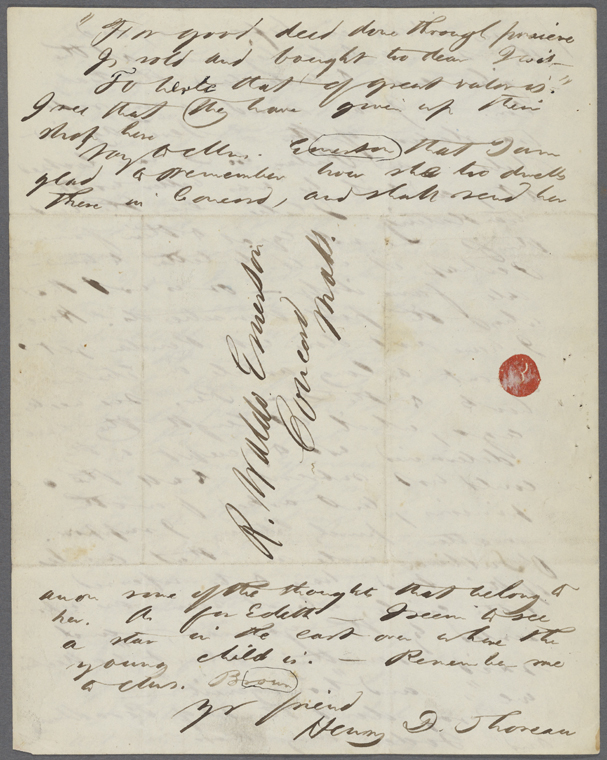 "For good deed done through praiere
Is sold and bought to dear I wis
To herte that of great valor is."
I see that they have given up their
shop here
Say to Mrs. Emerson that I am
glad to remember how she too dwells
there in Concord, and shall send her
R. Waldo Emerson
Concord
Mass.
anon some of the thoughts that belong to
her. As for Edith I seem to see
a star in the east over where the
young child is. — Remember me
to Mrs. Brown
yr friend
Henry D. Thoreau